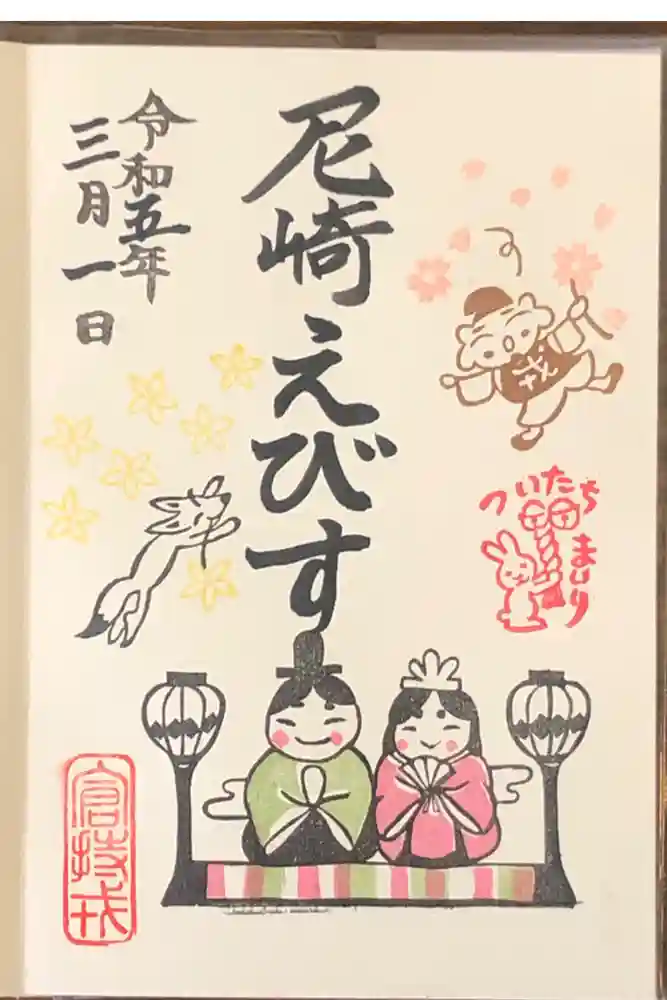 尼崎えびす
令和五年
三月一日
戎
ついたち
まいり